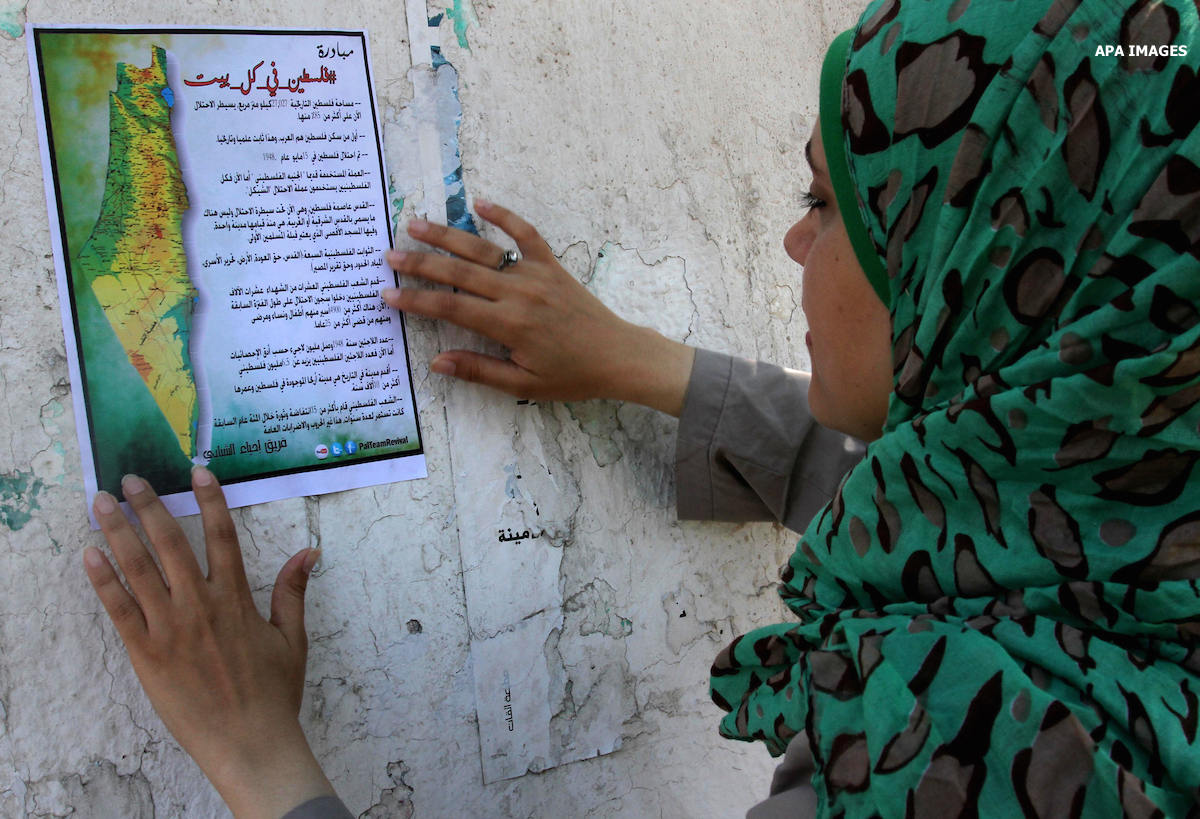 APA IMAGES
مبادرة
#فلسطين_في_كل_بيت
--- مساحة فلسطين التاريخية 27,027 كيلو متر مربع، يسيطر الاحتلال
الآن على أكثر من 85% منها.
--- أول من سكن فلسطين هم العرب، وهذا ثابت علميا وتاريخيا.
--- تم احتلال فلسطين في 15 مايو عام 1948.
---العملة المستخدمة قديما "الجنيه الفلسطيني" أما الآن فكل
الفلسطينيين يستخدمون عملة الاحتلال "الشيكل".
---القدس عاصمة فلسطين وهي الآن تحت سيطرة الاحتلال وليس هناك
ما يسمى بالقدس الشرقية أو الغربية، هي منذ قيامها مدينة واحدة،
وفيها المسجد الأقصى الذي يعتبر قبلة المسلمين الأولى.
--- الثوابت الفلسطينية السبعة (القدس، حق العودة، الأرض، تحرير الأسرى،
المياه، الحدود، وحق تقرير المصير)
قدم الشعب الفلسطيني العشرات من الشهداء، عشرات الآلاف
الفلسطينيين دخلوا سجون الاحتلال على طول الفترة السابقة
الآن، هناك أكثر من 4900 أسير منهم أطفال ونساء ومرضى
ومنهم من قضى أكثر من 25 عاما.
---عدد اللاجئين سنة 1948 وصل مليون لاجيء حسب أدق الإحصائيات
أما الآن فعدد اللاجئين الفلسطينيين يزيد عن 5 مليون فلسطيني
--- أقدم مدينة في التاريخ هي مدينة أريحا الموجودة في فلسطين وعمرها
أكثر من 10 آلاف سنة
---الشعب الفلسطيني قام بأكثر من 15 انتفاضة وثورة خلال المئة عام السابقة
كانت تستمر لعدة سنوات، هذا غير الحروب والاضرابات العامة
فريق إحياء الشبابي
PalTeamRevival